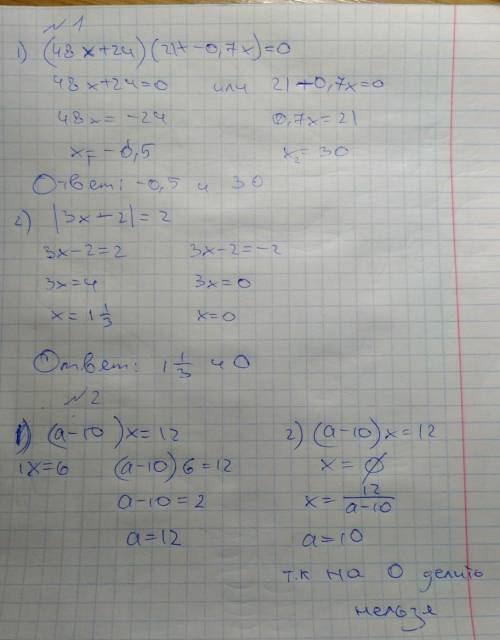 № 1
1) (48x+24)(21-0,7x)=0
48x+24=0 или 21-0,7x=0
48x=-24 0,7x=21
x₁=-0,5 x₂=30
Ответ: -0,5 и 30
2) |3x-2|=2
3x-2=2 3x-2=-2
3x=4 3x=0
x=1 1/3 x=0
Ответ: 1 1/3 и 0
№ 2
1) (a-10)x=12
x=6 (a-10)6=12
a-10=2
a=12
2) (a-10)x=12
x=∅
x=12/(a-10)
a=10
т.к на 0 делить
нельзя